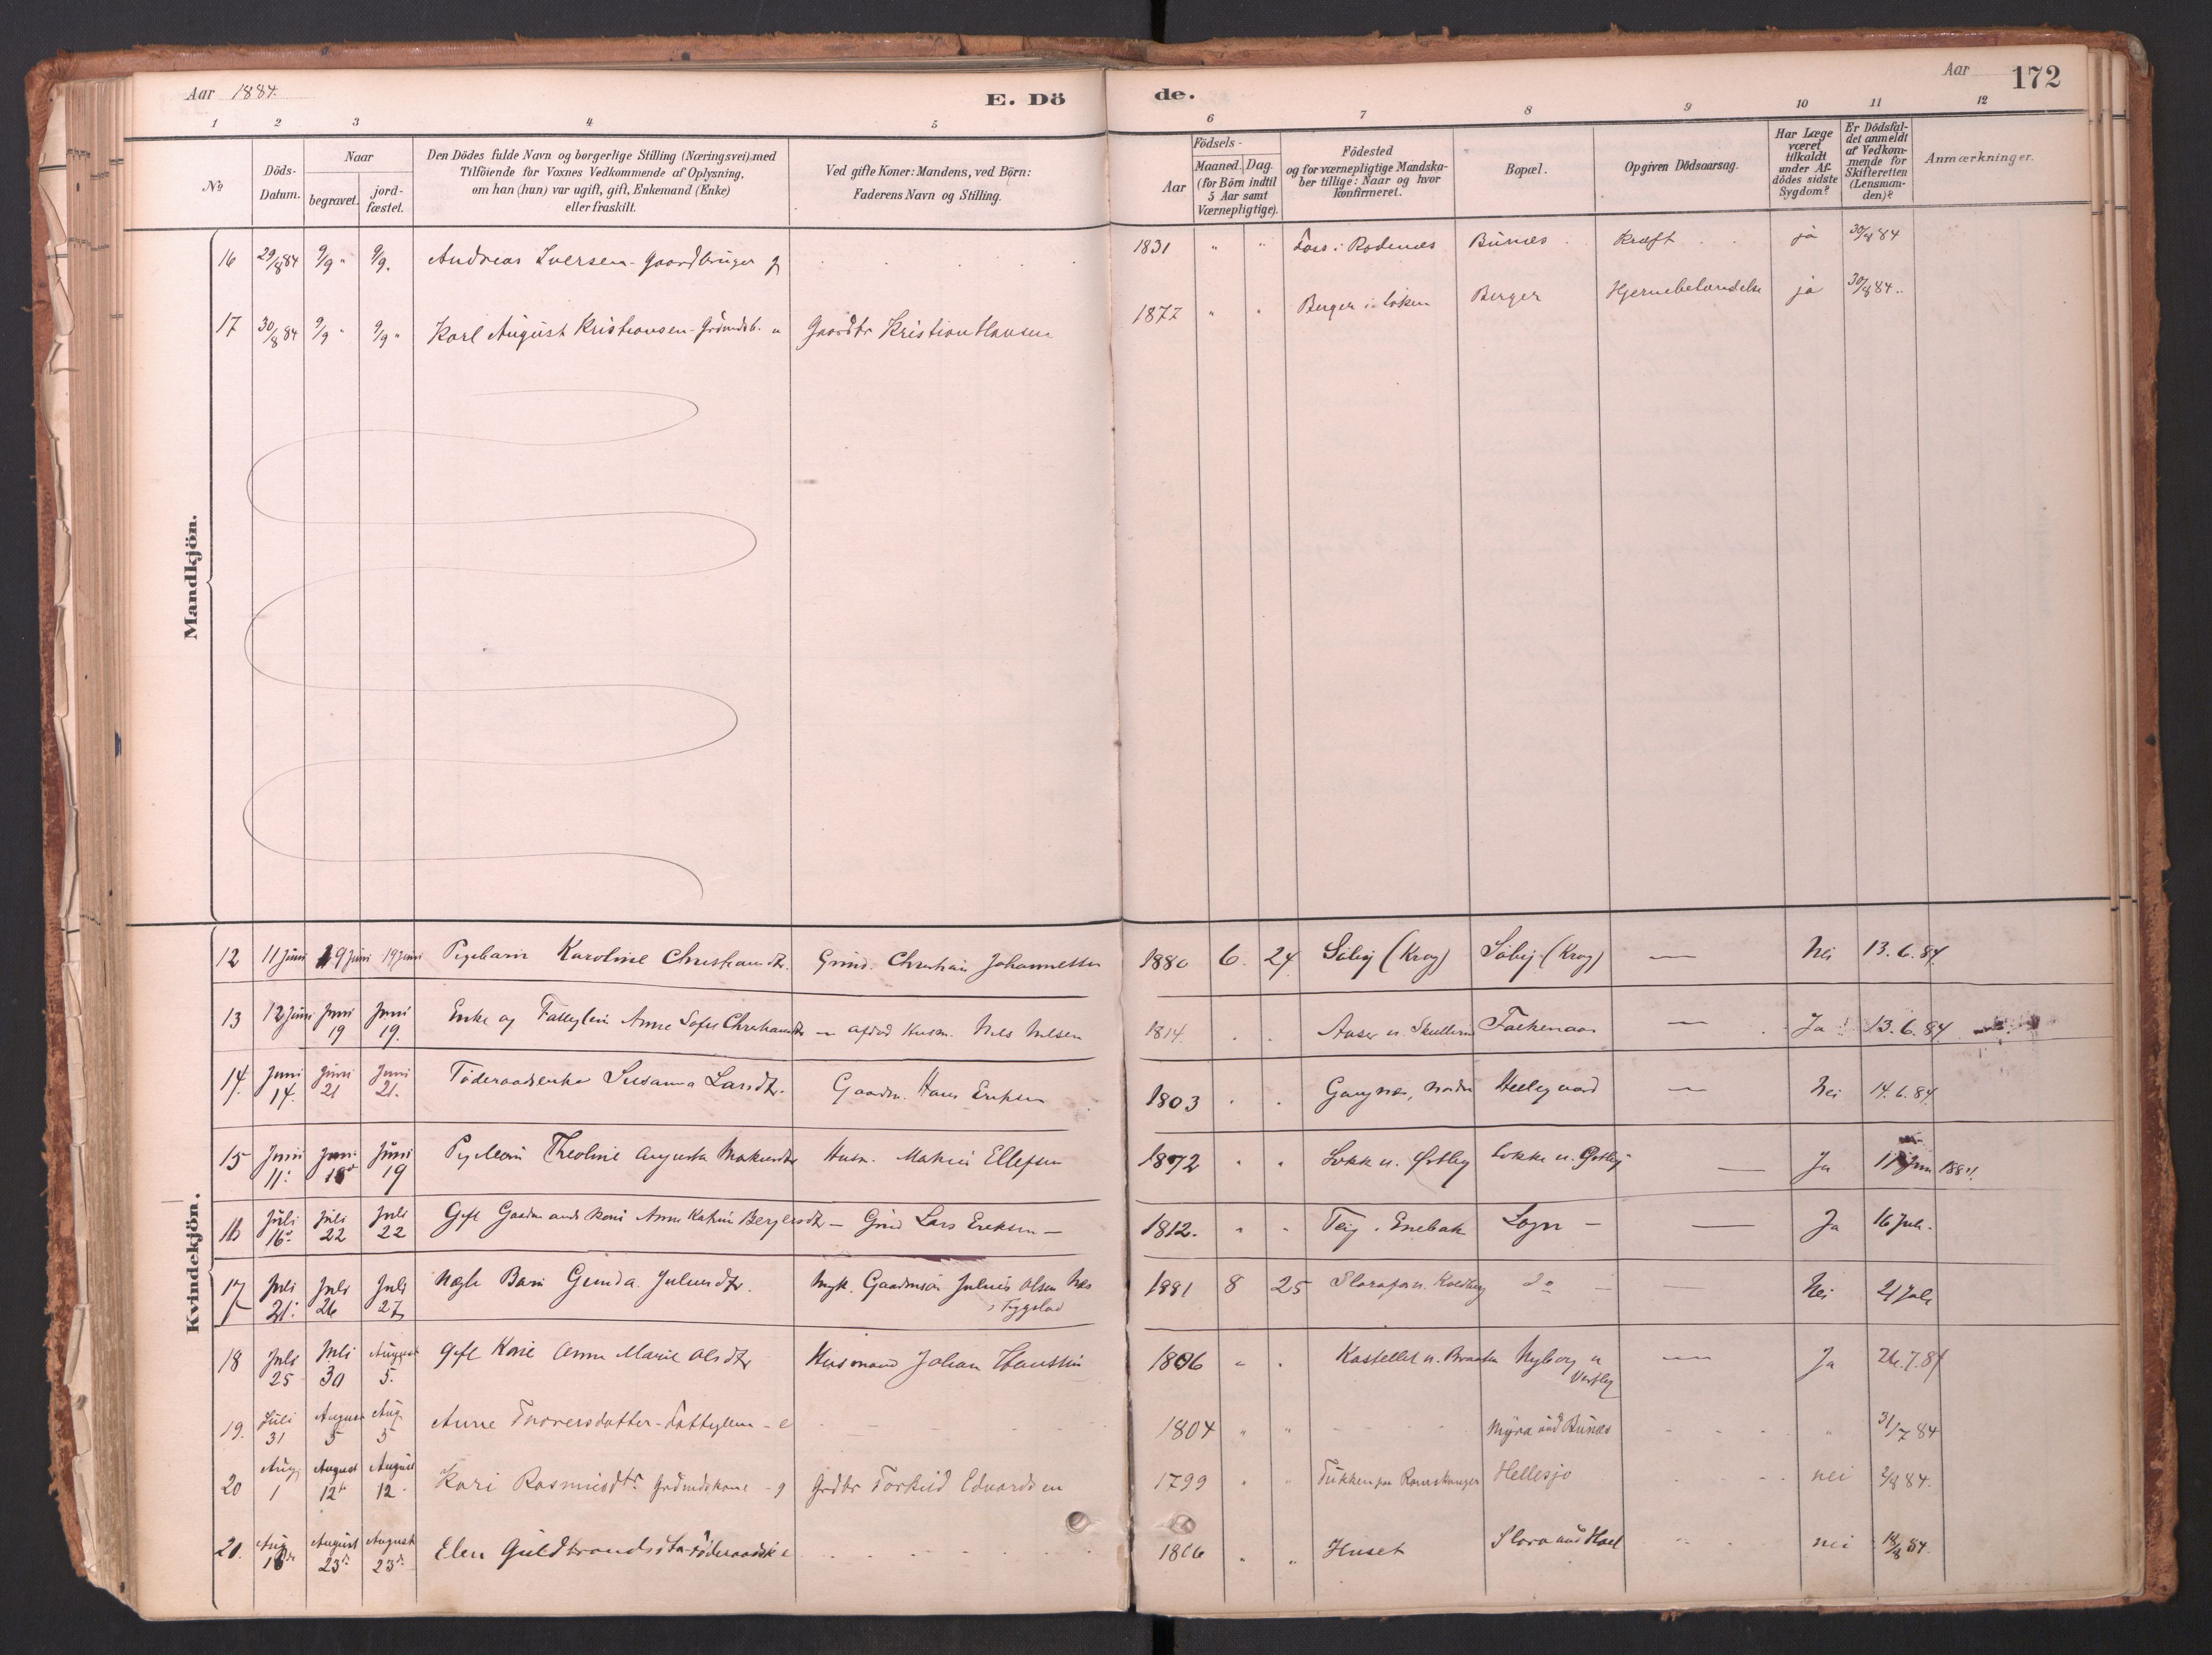 Aar 1884.
E. Dö
de.
Aar 172
1 2 3 4 5 6 7 8 9 10 11 12
No
Döds-
Datum.
Naar
begravet.
jord-
fæstet.
Den Dödes fulde Navn og borgerlige Stilling (Næringsvei) med
Tilföiende for Voxnes Vedkommende af Oplysning,
om han (hun) var ugift, gift, Enkemand (Enke)
eller fraskilt.
Ved gifte Koner: Mandens, ved Börn:
Faderens Navn og Stilling.
Födsels-
Aar
Maaned. Dag.
(for Börn indtil
5 Aar samt
Værnepligtige).
Födested
og for værnepligtige Mandska-
ber tillige: Naar og hvor
konfirmeret.
Bopæl.
Opgiven Dödsaarsag.
Har Læge
været
tilkaldt
under Af-
dödes sidste
Sygdom?
Er Dödsfal-
det anmeldt
af Vedkom-
mende for
Skifteretten
(Lensman-
den)?
Anmærkninger.
Mandkjön.
16 29/8 84 9/9 " 9/9. Andreas Iversen - Gaardbruger g 1831 " " Foss i Rødenes Bunes Kræft ja 30/8 84
17 30/8 84 9/9 " 9/9 " Karl August Kristiansen - Grdmdsb. u Gaardbr Kristian Hansen 1877 " " Berger i Løken Berger Hjernebetændelse ja 30/8 84
Kvindekjön.
12 11 Juni 19 Juni 19 Juni Pigebarn Karoline Christiansdtr. Grmd. Christian Johannessen 1880 6. 24 Søby (Krog) Søby (Krog) — Nei 13.6.84.
13 12 Juni Juni 19 Juni 19. Enke og Fattiglem Anne Sofie Christiansdtr — afdød Husm. Nils Nilsen 1814. Aaser u. Skullerud — Ja 13.6.84
14. Juni 14. Juni 21 Juni 21. Föderaadsenke Susanna Larsdtr. Gaardm. Hans Eriksen 1803 Gangnes, nordre — Nei 14.6.84.
15 Juni 11. Juni 19 Pigebarn Theoline Augusta Husm. Ellefsen 1872 " " Løkk u. Østby Løkke u. Østby — Ja 11 Juni 1884.
16 Juli 16. Juli 22 Juli 22 Gift Gaardmands Kone Anne Katrine Bergersdtr — Grmd Lars Eriksen — 1812. " " Teig i Enebak — — Ja 16 Juli.
17 Juli 21. Juli 26 Juli 27 Barn Gunda Juliusdtr. Gaardmand Julius Olsen Næs i Tyggstad 1881 8 25 do — — Nei 21 Juli
18 Juli 25 Juli 30 August 5. Gift Kone Anne Marie Olsdtr Husmand Johan 1806 " " Kastellet u. Braaten Nyborg u Vestby — Ja 26.7.84
19. Juli 31 August 5 Aug. 5 Anne Thorersdatter - Fattiglem - e 1804 " " Myra und Bunes " 31/7 84
20 Aug. 1 August 12. August 12. Kari Rasmusdtr Grdmdskone - g Grdbr Torkild Edvardsen 1799 " " Tukken paa Romskougen Hellesjø nei 2/8 84.
21. Aug August 23de August 23de Elen Guldbrandsdtr - Føderaadsk e 1806 " " Huset nei 18/8 84.